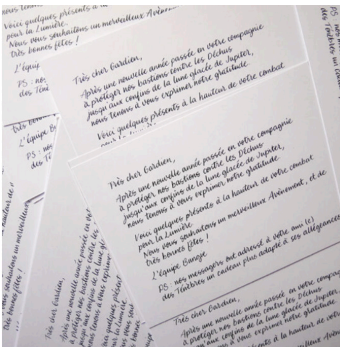 Voici quelques présents à
pour la Lumière.
Nous vous souhaitons un merveilleux Avènement
Très bonnes fêtes !
L'équipe
PS : nos
des Ténèbres
Très cher Gardien,
Après une nouvelle année passée en votre compagnie
à protéger nos bastions contre les Déchus
jusqu'aux confins de la lune glacée de Jupiter,
nous tenons à vous exprimer notre gratitude.
Voici quelques présents à la hauteur de votre combat
L'équipe
PS : nos
des
Très cher Gardien,
Après une nouvelle année passée en votre compagnie
à protéger nos bastions contre les Déchus
jusqu'aux confins de la lune glacée de Jupiter,
nous tenons à vous exprimer notre gratitude.
Voici quelques présents à la hauteur de votre combat
pour la Lumière.
Nous vous souhaitons un merveilleux Avènement, et de
très bonnes fêtes !
L'équipe Bungie
PS : nos messagers ont adressé à votre ami (e)
des Ténèbres un cadeau plus adapté à ses allégeances
Très cher Gardien,
Après une nouvelle année passée en
à protéger nos bastions contre les
jusqu'aux confins de la lune
nous tenons à vous exprimer
Voici quelques présents
pour la Lumière.
Nous vous
Très cher Gardien,
Après une nouvelle année passée en votre
à protéger nos bastions contre les Déchus
jusqu'aux confins de la lune glacée de Jupiter,
nous tenons à vous exprimer notre gratitude.
Voici quelques présents à la hauteur de votre